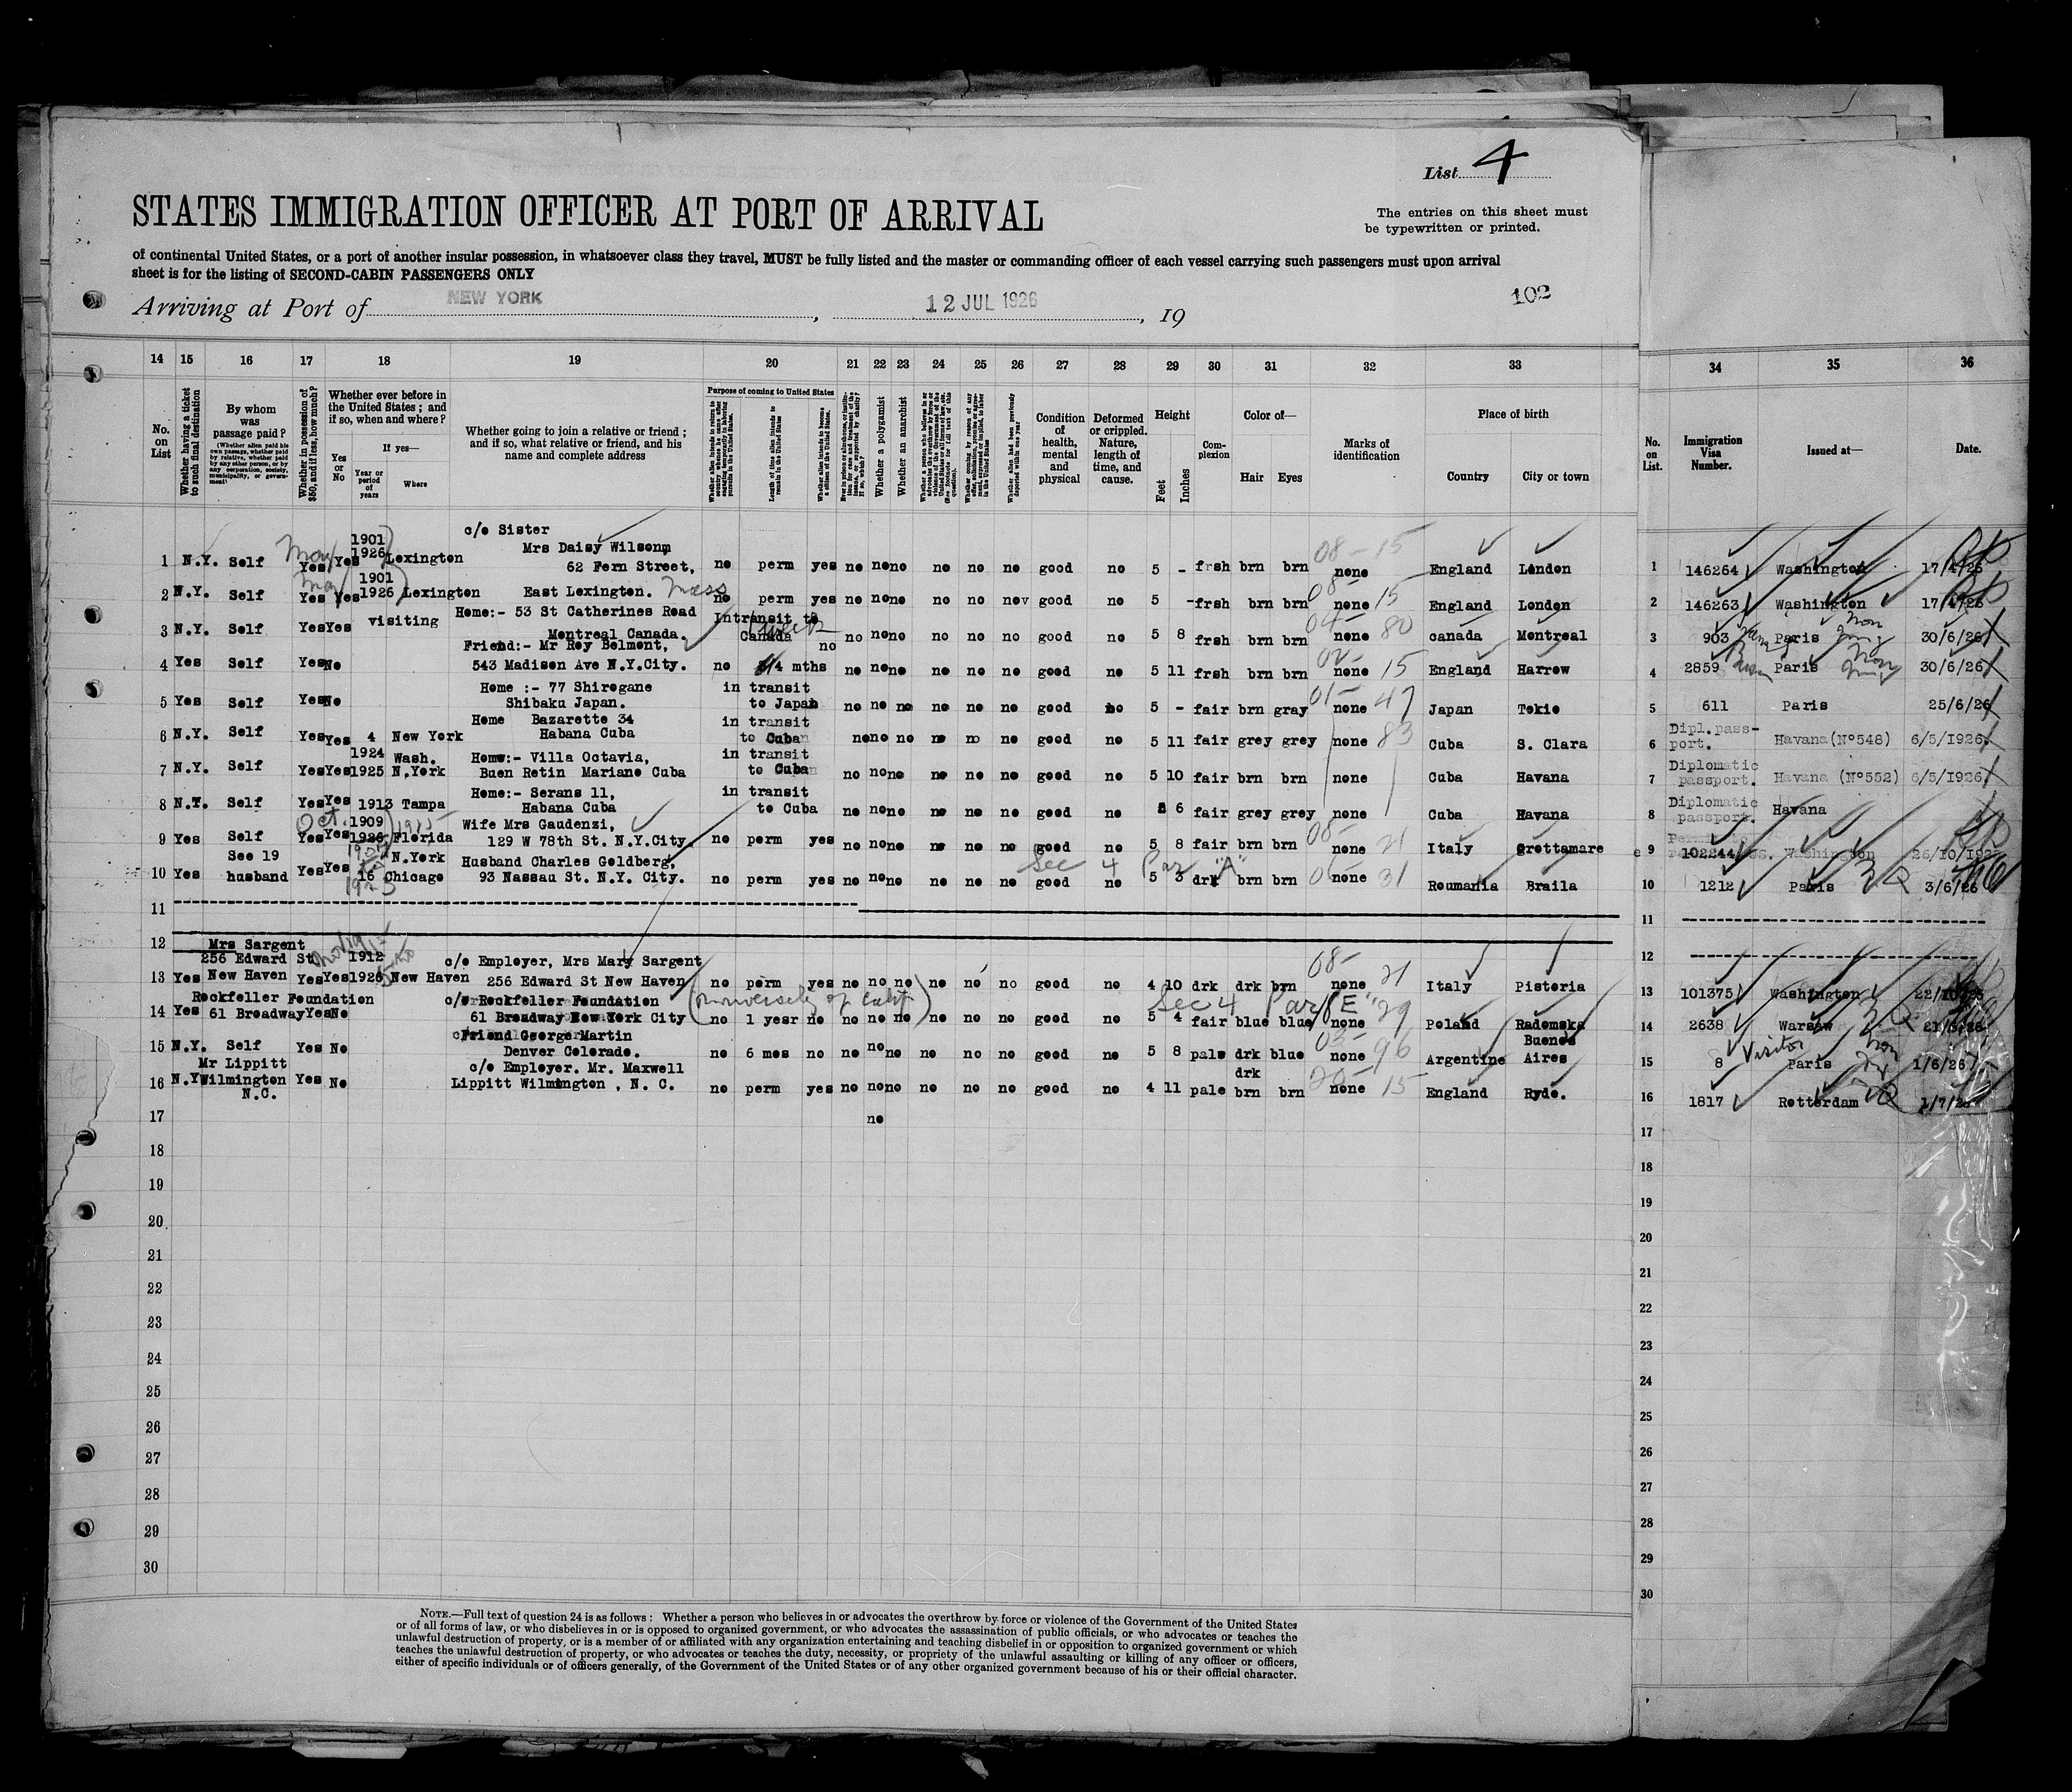 List 4
STATES IMMIGRATION OFFICER AT PORT OF ARRIVAL
The entries on this sheet must
be typewritten or printed.
of continental United States, or a port of another insular possession, in whatsoever class they travel, MUST be fully listed and the master or commanding officer of each vessel carrying such passengers must upon arrival
sheet is for the listing of SECOND-CABIN PASSENGERS ONLY
Arriving at Port of NEW YORK, 12 JUL 1926, 19
102
14 15 16 17 18 19 20 21 22 23 24 25 26 27 28 29 30 31 32 33 34 35 36
No. on List
Whether having a ticket to such final destination
By whom was passage paid?
(Whether alien paid his own passage, whether paid by relative, whether paid by any other person, or by any corporation, society, municipality, or government)
Whether in possession of $50, and if less, how much?
Whether ever before in the United States; and if so, when and where?
Yes or No
If yes—
Year or period of years
Where
Whether going to join a relative or friend; and if so, what relative or friend, and his name and complete address
Purpose of coming to United States
Length of time alien intends to remain in the United States
Whether alien intends to become a citizen of the United States
Whether a polygamist
Whether an anarchist
Condition of health, mental and physical
Deformed or crippled. Nature, length of time, and cause.
Height
Feet Inches
Complexion
Color of—
Hair Eyes
Marks of identification
Place of birth
Country City or town
No. on List.
Immigration Visa Number.
Issued at—
Date.
c/o Sister
Mrs Daisy Wilson
1 N.Y. Self Yes Yes 1901 1926 Lexington 62 Fern Street, no perm yes no no no no no no good no 5 - frsh brn brn none England London 1 146264 Washington 17/4/26
2 N.Y. Self Yes Yes 1901 1926 Lexington East Lexington. Mass no perm yes no no no no no no good no 5 - frsh brn brn none England London 2 146263 Washington 17/4/26
Home:- 53 St Catherines Road
3 N.Y. Self Yes Yes visiting Montreal Canada. Intransit to Canada no no no no no no good no 5 8 frsh brn brn none canada Montreal 3 903 Paris 30/6/26
Friend:- Mr Roy Belmont,
4 Yes Self Yes No 543 Madison Ave N.Y.City. no 4 mths no no no no no no no good no 5 11 frsh brn brn none England Harrow 4 2859 Paris 30/6/26
Home :- 77 Shirogane
5 Yes Self Yes No Shibaku Japan. in transit to Japan no no no no no no good no 5 - fair brn gray none Japan Tokio 5 611 Paris 25/6/26
Home Bazarette 34
6 N.Y. Self Yes Yes 4 New York Habana Cuba in transit to Cuba no no no no no no good no 5 11 fair grey grey none Cuba S. Clara 6 Dipl. passport. Havana (Nº548) 6/5/1926.
Home:- Villa Octavia,
7 N.Y. Self Yes Yes 1924 1925 Wash. N.York Buen Retin Mariano Cuba in transit to Cuba no no no no no no good no 5 10 fair brn brn none Cuba Havana 7 Diplomatic passport. Havana (Nº552) 6/5/1926.
Home:- Serans 11,
8 N.Y. Self Yes Yes 1913 Tampa Habana Cuba in transit to Cuba no no no no no no good no 5 6 fair grey grey none Cuba Havana 8 Diplomatic passport. Havana
Wife Mrs Gaudenzi,
9 Yes Self Yes Yes 1909 1926 Florida 129 W 78th St. N.Y.City. no perm yes no no no no no no good no 5 8 fair brn brn none Italy Grottamare 9 102244 Washington
Sec 4 Par "A"
10 Yes See 19 husband Yes Yes 16 N.York Chicago Husband Charles Goldberg, 93 Nassau St. N.Y. City. no perm yes no no no no no no good no 5 3 drk brn brn none Roumania Braila 10 1212 Paris 3/6/26
11 11
12 12
Mrs Sargent
256 Edward St
13 Yes New Haven Yes Yes 1912 1926 New Haven c/o Employer, Mrs Mary Sargent 256 Edward St New Haven no perm yes no no no no no no good no 4 10 drk drk brn none Italy Pistoria 13 101375 Washington
(University of Calif) Sec 4 Par "E"
14 Yes Rockfeller Foundation 61 Broadway Yes No c/o Rockfeller Foundation 61 Broadway New York City no 1 year no no no no no no no good no 5 4 fair blue blue none Poland Radomska 14 2638 Warsaw
15 N.Y. Self Yes No Friend George Martin Denver Colorado. no 6 mos no no no no no no no good no 5 8 pale drk blue none Argentine Buenos Aires 15 8 Visitor Paris 1/6/26
16 N.Y. Mr Lippitt Wilmington N.C. Yes No c/o Employer. Mr. Maxwell Lippitt Wilmington , N. C. no perm yes no no no no no no good no 4 11 pale drk brn brn none England Ryde. 16 1817 Rotterdam 1/7/26
17 no 17
18 18
19 19
20 20
21 21
22 22
23 23
24 24
25 25
26 26
27 27
28 28
29 29
30 30
NOTE.—Full text of question 24 is as follows: Whether a person who believes in or advocates the overthrow by force or violence of the Government of the United States
or of all forms of law, or who disbelieves in or is opposed to organized government, or who advocates the assassination of public officials, or who advocates or teaches the
unlawful destruction of property, or is a member of or affiliated with any organization entertaining and teaching disbelief in or opposition to organized government or which
teaches the unlawful destruction of property, or who advocates or teaches the duty, necessity, or propriety of the unlawful assaulting or killing of any officer or officers,
either of specific individuals or of officers generally, of the Government of the United States or of any other organized government because of his or their official character.